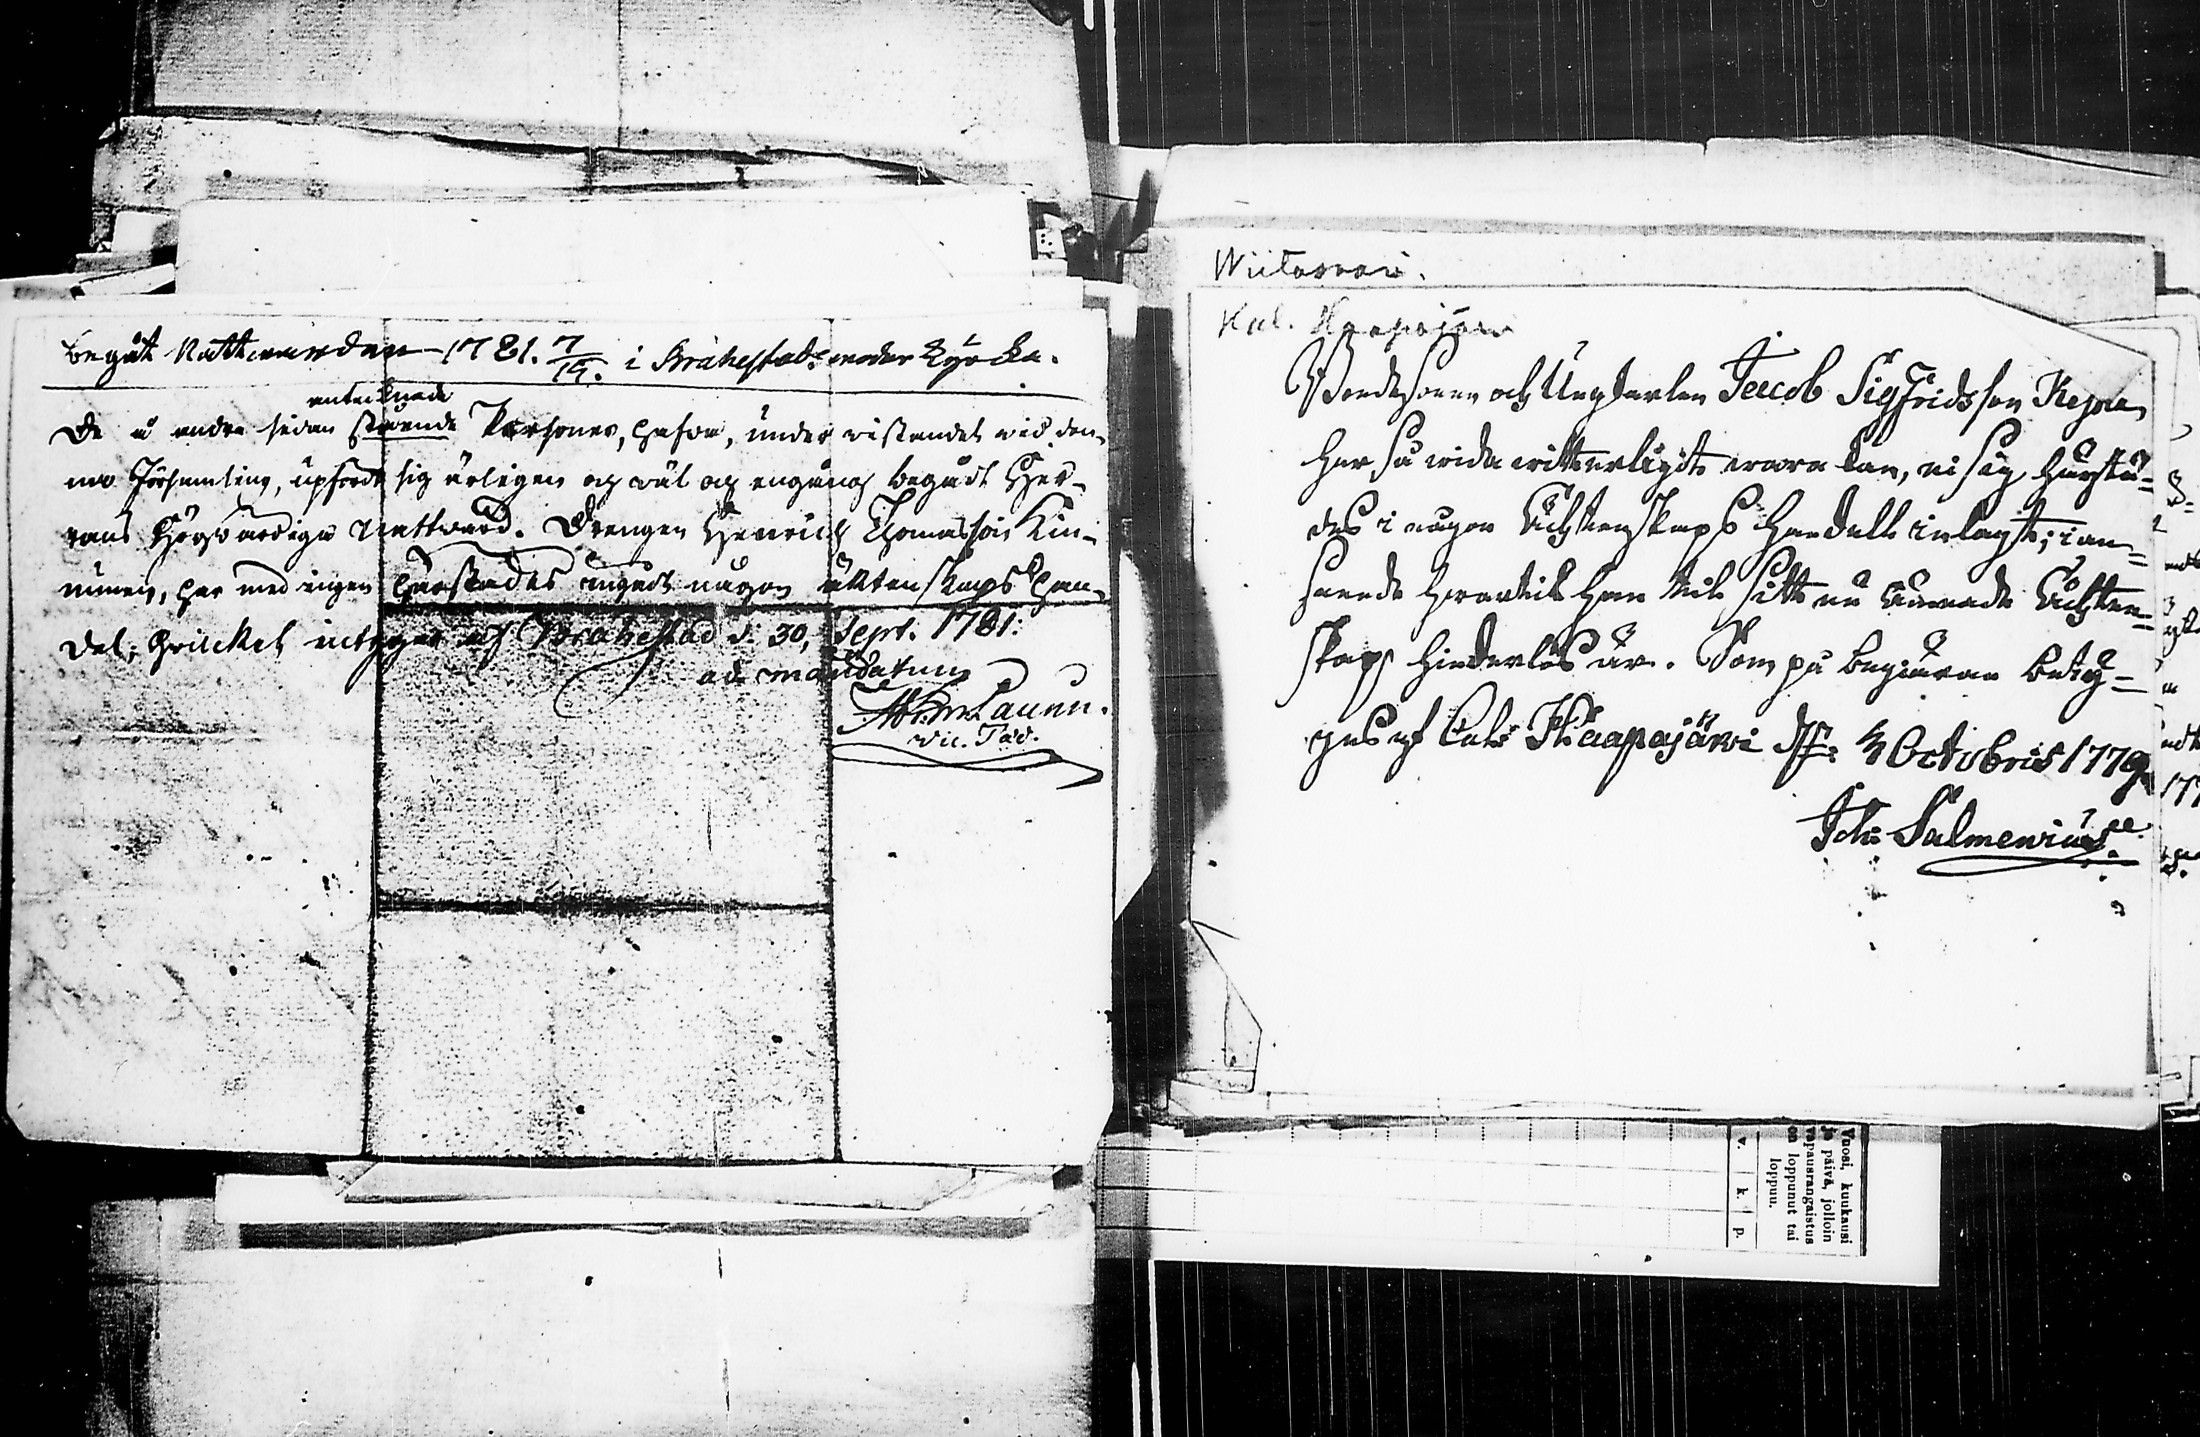 begått Nattwarden 1781. 7/19. i Brahestads moder Kyrcka.
antecknade
De å andra sidan stående Personer, hafwa, under wistandet wid den-
na Församling, upfördt sig ärligen og wäl og engång begådt Her-
rans Högwärdiga nattward. Drengen Henrich Thomasson Kin-
nunen, har med ingen härstädes ingådt någon äktenskaps han-
del, hwilket intygas af Brahestad d. 30, Sept. 1781.
ad mandatum
Lauren.
vic. Past.
Wiitasaari.
Kal. Haapajärvi
Bondesonen och Ungkarlen Jacob Sigfridsson
har så wida witterligit wara kan, ei sig härstä=
des i någon Ächtenskaps Handell inlagt; i an=
seende hwartil han til sitt nu ärnade Ächten=
skap hinderlös är. Som på begiäran bety=
gas af Cala Haapajärwi d. 4 Octobris 1779.
Joh: Salmenius.
Vuosi, kuukausi
ja päivä, jolloin
vapausrangaistus
on loppunut tai
loppuu.
v. k. p.